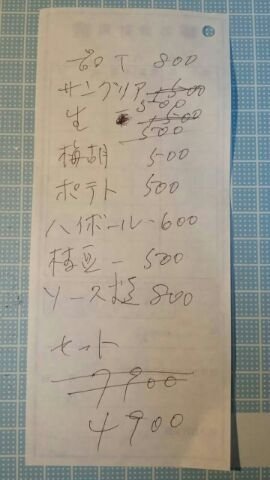 T 800
サングリア ~~1500~~ 500
生 ~~1500~~ 500
梅胡 500
ポテト 500
ハイボール - 600
枝豆 - 500
ソース 800
セット
~~7900~~
4900